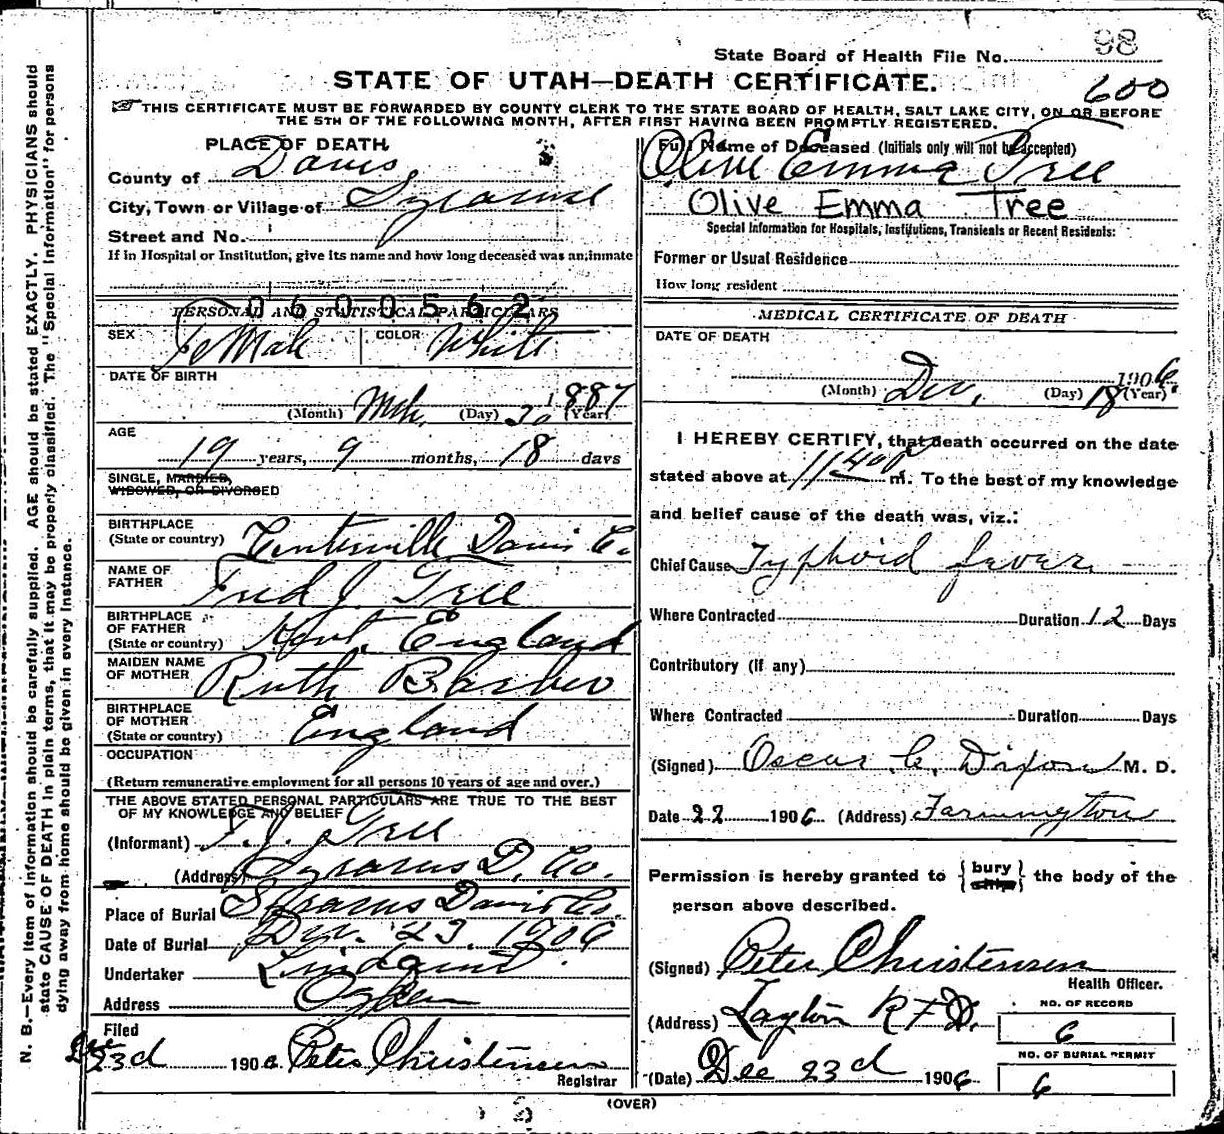 98
State Board of Health File No.
STATE OF UTAH—DEATH CERTIFICATE.
600
THIS CERTIFICATE MUST BE FORWARDED BY COUNTY CLERK TO THE STATE BOARD OF HEALTH, SALT LAKE CITY, ON OR BEFORE
THE 5TH OF THE FOLLOWING MONTH, AFTER FIRST HAVING BEEN PROMPTLY REGISTERED.
PLACE OF DEATH
County of Davis,
City, Town or Village of Syracuse
Street and No.
If in Hospital or Institution, give its name and how long deceased was an inmate
0600562
PERSONAL AND STATISTICAL PARTICULARS
SEX Female COLOR White
DATE OF BIRTH
(Month) Mch. (Day) 30 1887 (Year)
AGE
19 years, 9 months, 18 days
SINGLE, MARRIED,
WIDOWED, OR DIVORCED
BIRTHPLACE
(State or country) Centerville Davis Co.
NAME OF
FATHER Fred J. Tree
BIRTHPLACE
OF FATHER
(State or country) Kent, England
MAIDEN NAME
OF MOTHER Ruth Barber
BIRTHPLACE
OF MOTHER
(State or country) England
OCCUPATION
(Return remunerative employment for all persons 10 years of age and over.)
THE ABOVE STATED PERSONAL PARTICULARS ARE TRUE TO THE BEST
OF MY KNOWLEDGE AND BELIEF
(Informant) F. J. Tree
(Address) Syracuse D. Co.
Place of Burial Syracuse Davis Co.
Date of Burial Dec. 23. 1906
Undertaker Lindquist
Address Ogden
Filed
Dec 23d 1906 Peter Christensen
Registrar
Full Name of Deceased (Initials only will not be accepted)
Olive Emma Tree
Olive Emma Tree
Special Information for Hospitals, Institutions, Transients or Recent Residents:
Former or Usual Residence
How long resident
MEDICAL CERTIFICATE OF DEATH
DATE OF DEATH
(Month) Dec. (Day) 18 1906 (Year)
I HEREBY CERTIFY, that death occurred on the date
stated above at 11 40 P m. To the best of my knowledge
and belief cause of the death was, viz.:
Chief Cause Typhoid fever
Where Contracted Duration 12 Days
Contributory (if any)
Where Contracted Duration Days
(Signed) Oscar C. Dixon M. D.
Date 22 1906 (Address) Farmington
Permission is hereby granted to { bury } the body of the
person above described.
(Signed) Peter Christensen
Health Officer.
(Address) Layton R F D.
NO. OF RECORD
6
NO. OF BURIAL PERMIT
6
(Date) Dec 23d 1906
(OVER)
N. B.—Every item of information should be carefully supplied. AGE should be stated EXACTLY. PHYSICIANS should
state CAUSE OF DEATH in plain terms, that it may be properly classified. The "Special Information" for persons
dying away from home should be given in every instance.